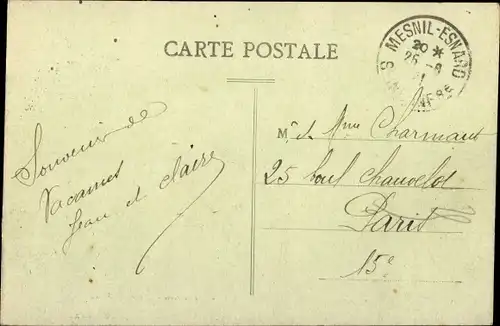 CARTE POSTALE
MESNIL-ESNARD
20 *
25 -8
Souvenir de
Vacances
Jean et Claire
M. et Mme Charmant
25 boul Chauvelot
Paris
15e